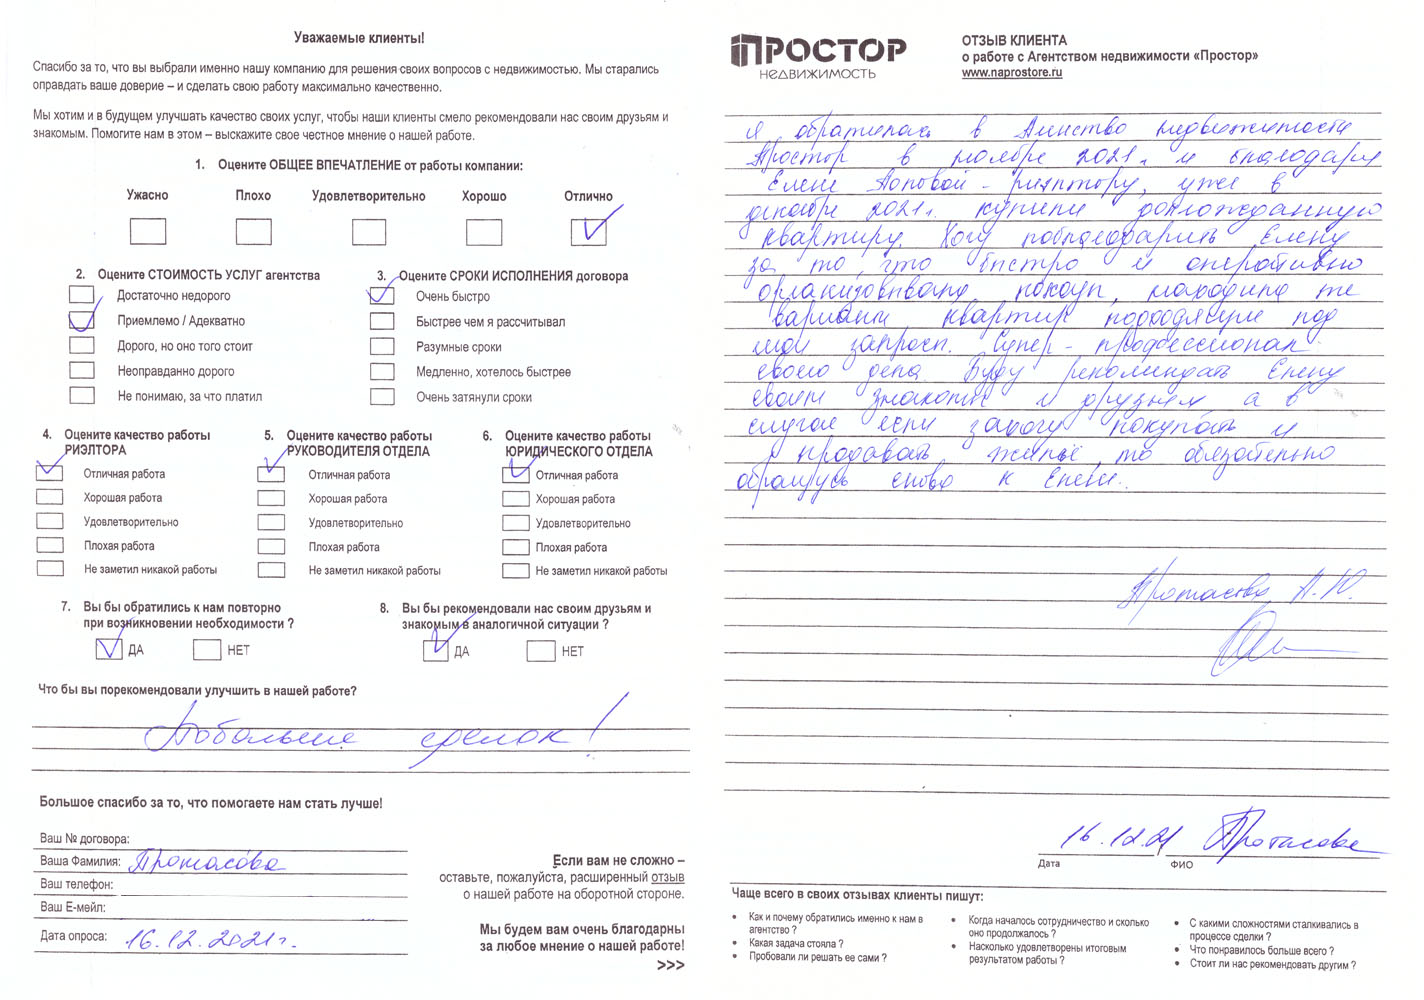 Уважаемые клиенты!
Спасибо за то, что вы выбрали именно нашу компанию для решения своих вопросов с недвижимостью. Мы старались
оправдать ваше доверие – и сделать свою работу максимально качественно.
Мы хотим и в будущем улучшать качество своих услуг, чтобы наши клиенты смело рекомендовали нас своим друзьям и
знакомым. Помогите нам в этом – выскажите свое честное мнение о нашей работе.
1. Оцените ОБЩЕЕ ВПЕЧАТЛЕНИЕ от работы компании:
Ужасно Плохо Удовлетворительно Хорошо Отлично
2. Оцените СТОИМОСТЬ УСЛУГ агентства
Достаточно недорого
Приемлемо / Адекватно
Дорого, но оно того стоит
Неоправданно дорого
Не понимаю, за что платил
3. Оцените СРОКИ ИСПОЛНЕНИЯ договора
Очень быстро
Быстрее чем я рассчитывал
Разумные сроки
Медленно, хотелось быстрее
Очень затянули сроки
4. Оцените качество работы
РИЭЛТОРА
Отличная работа
Хорошая работа
Удовлетворительно
Плохая работа
Не заметил никакой работы
5. Оцените качество работы
РУКОВОДИТЕЛЯ ОТДЕЛА
Отличная работа
Хорошая работа
Удовлетворительно
Плохая работа
Не заметил никакой работы
6. Оцените качество работы
ЮРИДИЧЕСКОГО ОТДЕЛА
Отличная работа
Хорошая работа
Удовлетворительно
Плохая работа
Не заметил никакой работы
7. Вы бы обратились к нам повторно
при возникновении необходимости ?
ДА НЕТ
8. Вы бы рекомендовали нас своим друзьям и
знакомым в аналогичной ситуации ?
ДА НЕТ
Что бы вы порекомендовали улучшить в нашей работе?
Побольше сделок!
Большое спасибо за то, что помогаете нам стать лучше!
Ваш № договора:
Ваша Фамилия: Протасова
Ваш телефон:
Ваш Е-мейл:
Дата опроса: 16.12.2021г.
Если вам не сложно –
оставьте, пожалуйста, расширенный отзыв
о нашей работе на оборотной стороне.
Мы будем вам очень благодарны
за любое мнение о нашей работе!
>>>
ПРОСТОР
НЕДВИЖИМОСТЬ
ОТЗЫВ КЛИЕНТА
о работе с Агентством недвижимости «Простор»
www.naprostore.ru
Я обратилась в Агенство недвижимости
Простор в ноябре 2021г. и благодаря
Елене Поповой - риэлтору, уже в
декабре 2021г. купили долгожданную
квартиру. Хочу поблагодарить Елену
за то, что быстро и оперативно
организовывала показы, находила те
варианты квартир подходящие под
мой запрос. Супер - профессионал
своего дела. Буду рекомендовать Елену
своим знакомым и друзьям а в
случае если захочу покупать и
продавать жильё, то обязательно
обращусь снова к Елене.
Протасова А.Ю.
16.12.21 Протасова
Дата ФИО
Чаще всего в своих отзывах клиенты пишут:
• Как и почему обратились именно к нам в
агентство ?
• Какая задача стояла ?
• Пробовали ли решать ее сами ?
• Когда началось сотрудничество и сколько
оно продолжалось ?
• Насколько удовлетворены итоговым
результатом работы ?
• С какими сложностями сталкивались в
процессе сделки ?
• Что понравилось больше всего ?
• Стоит ли нас рекомендовать другим ?